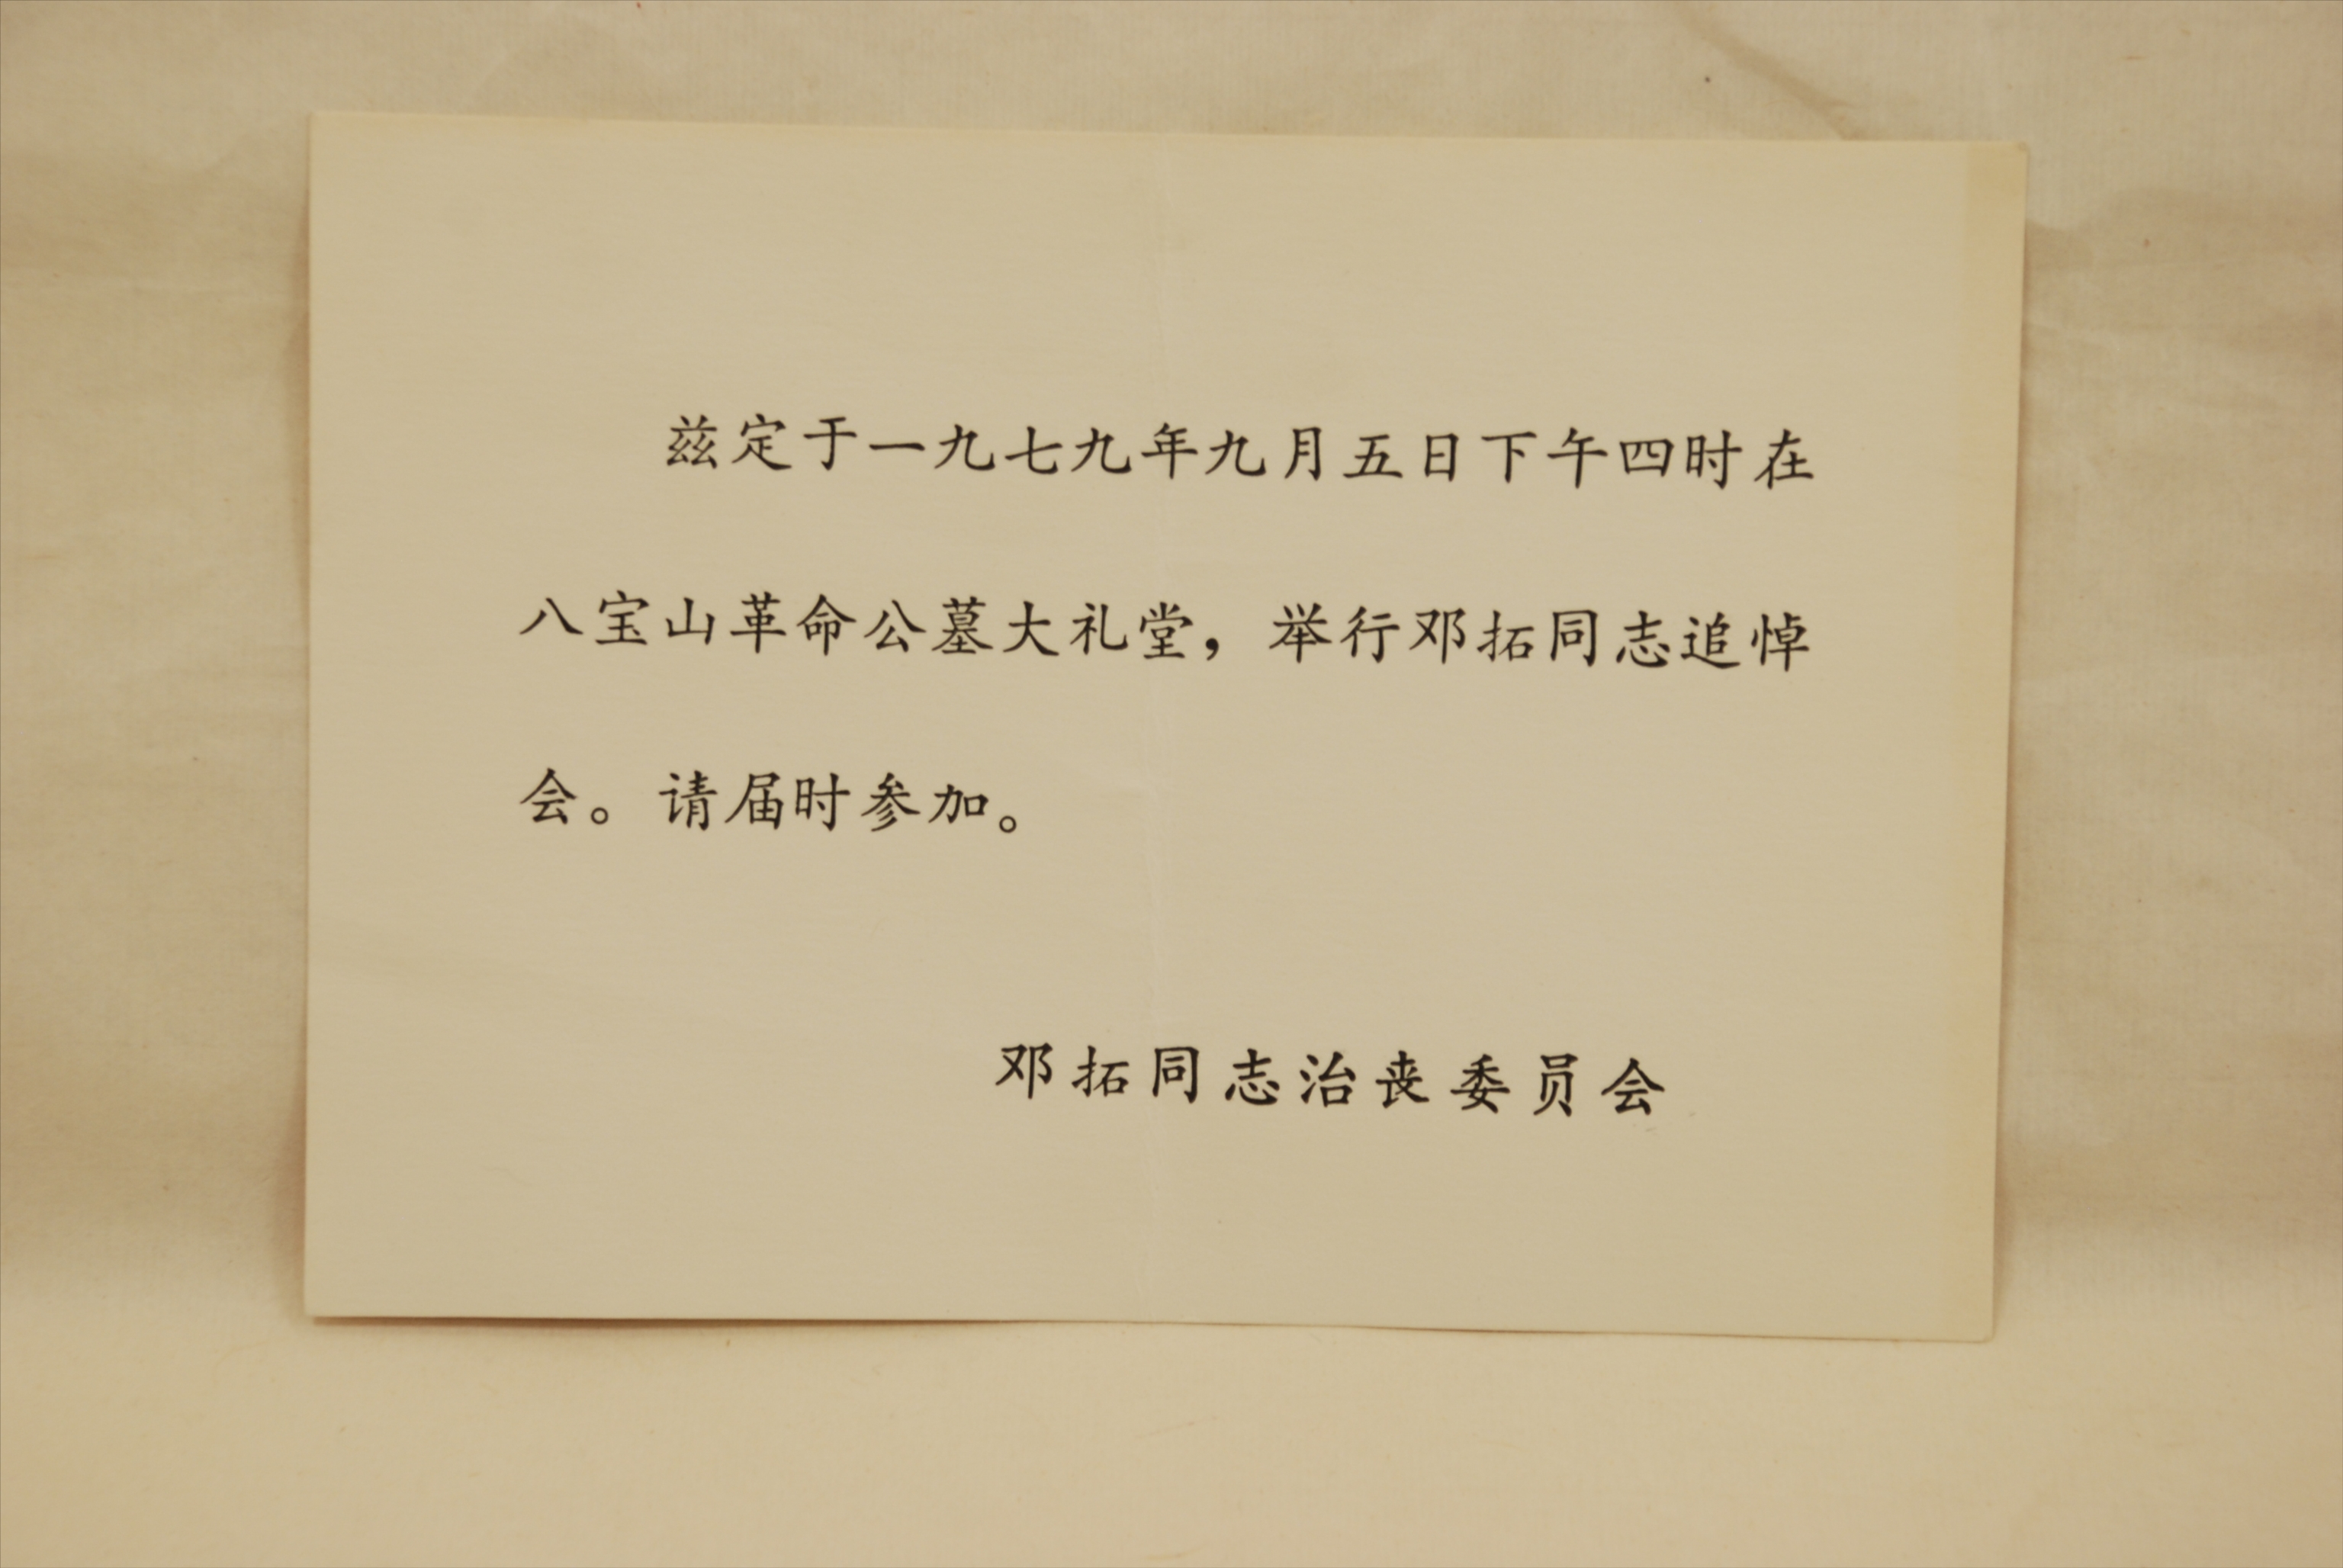 兹定于一九七九年九月五日下午四时在
八宝山革命公墓大礼堂，举行邓拓同志追悼
会。请届时参加。
邓拓同志治丧委员会